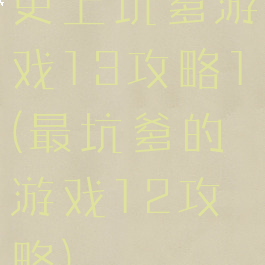 史上坑爹游
戏13攻略1
(最坑爹的
游戏12攻
略)